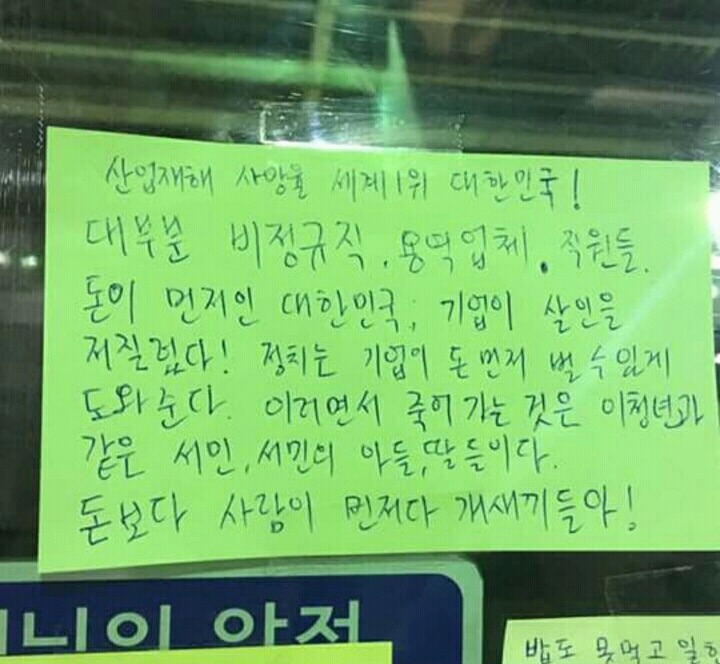 산업재해 사망율 세계1위 대한민국!
대부분 비정규직, 용역업체. 직원들.
돈이 먼저인 대한민국; 기업이 살인을
저질렀다! 정치는 기업이 돈먼저 벌 수 있게
도와준다. 이러면서 죽어가는 것은 이청년과
같은 서민, 서민의 아들, 딸들이다.
돈보다 사람이 먼저다 개새끼들아!
안전
밥도 못먹고 일하